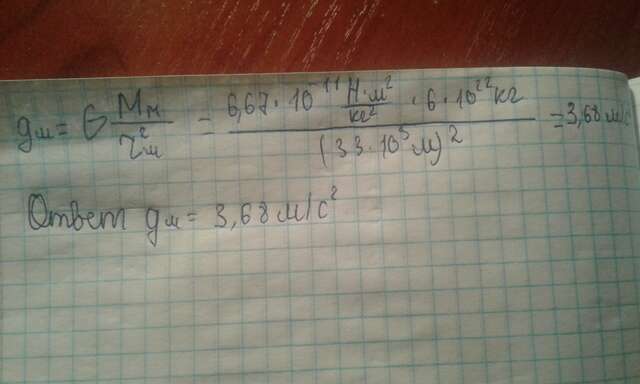 gм = G Mм / r²м = 6,67 · 10⁻¹¹ Н·м²/кг² · 6 · 10²² кг / (33 · 10⁵ м)² = 3,68 м/с
Ответ gм = 3,68 м/с²